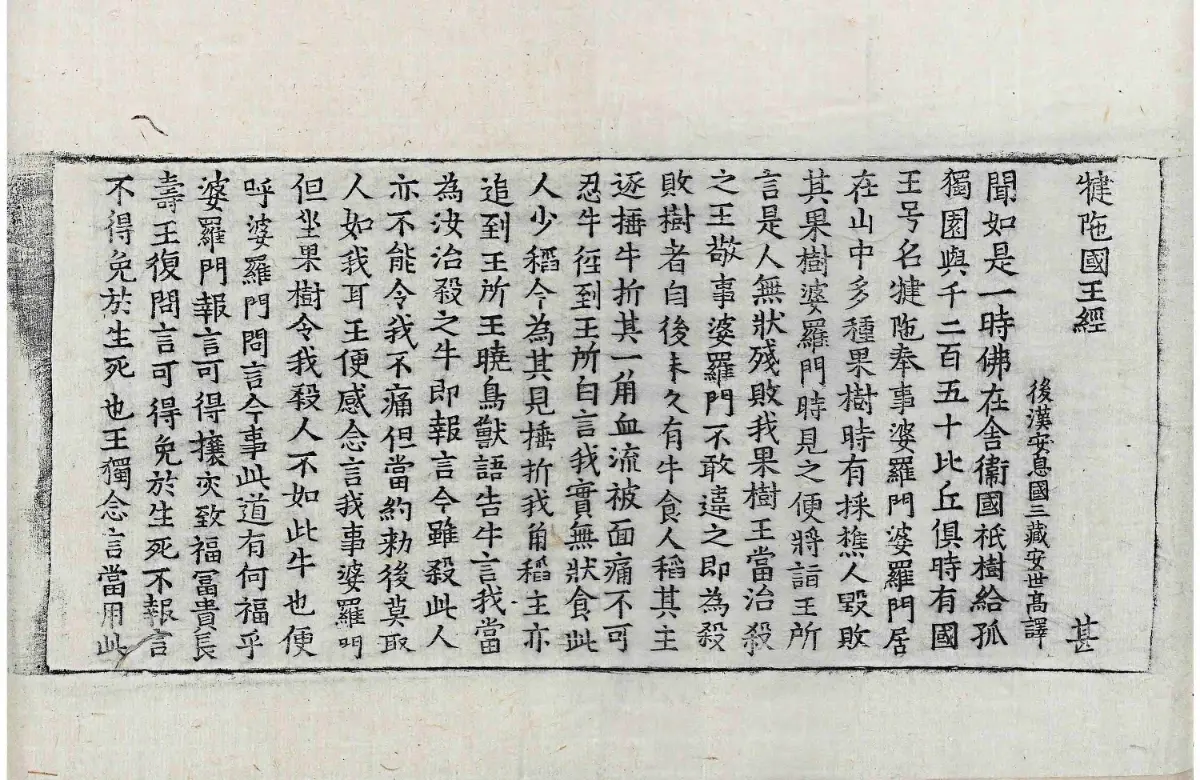 犍陁國王經 甚
後漢安息國三藏安世髙譯
聞如是一時佛在舍衞國祇樹給孤
獨園與千二百五十比丘俱時有國
王号名犍陁奉事婆羅門婆羅門居
在山中多種果樹時有採樵人毀敗
其果樹婆羅門時見之便將詣王所
言是人無狀殘敗我果樹王當治殺
之王敬事婆羅門不敢違之即為殺
敗樹者自後未久有牛食人稻其主
逐捶牛折其一角血流被面痛不可
忍牛徑到王所白言我實無狀食此
人少稻今為其見捶折我角稻主亦
追到王所王曉鳥獸語告牛言我當
為汝治殺之牛即報言今雖殺此人
亦不能令我不痛但當約勑後莫取
人如我耳王便感念言我事婆羅門
但坐果樹令我殺人不如此牛也便
呼婆羅門問言今事此道有何福乎
婆羅門報言可得攘灾致福冨貴長
壽王復問言可得免於生死不報言
不得免於生死也王獨念言當用此